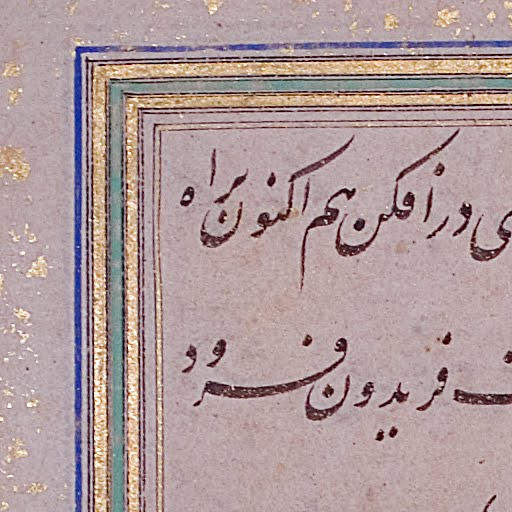 ور افکن هم اکنون براه
فریدون فرود